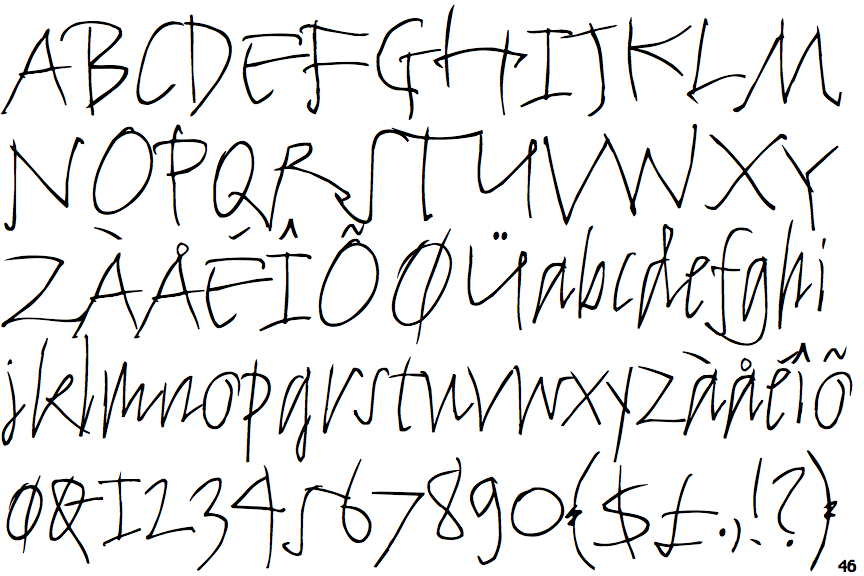 ABCDEFGHIJKLM
NOPQRSTUVWXY
ZÀÅÉÎÕØÜabcdefghi
jklmnopqrstuvwxyzàåéîõ
ø&1234567890($£.,!?)
46